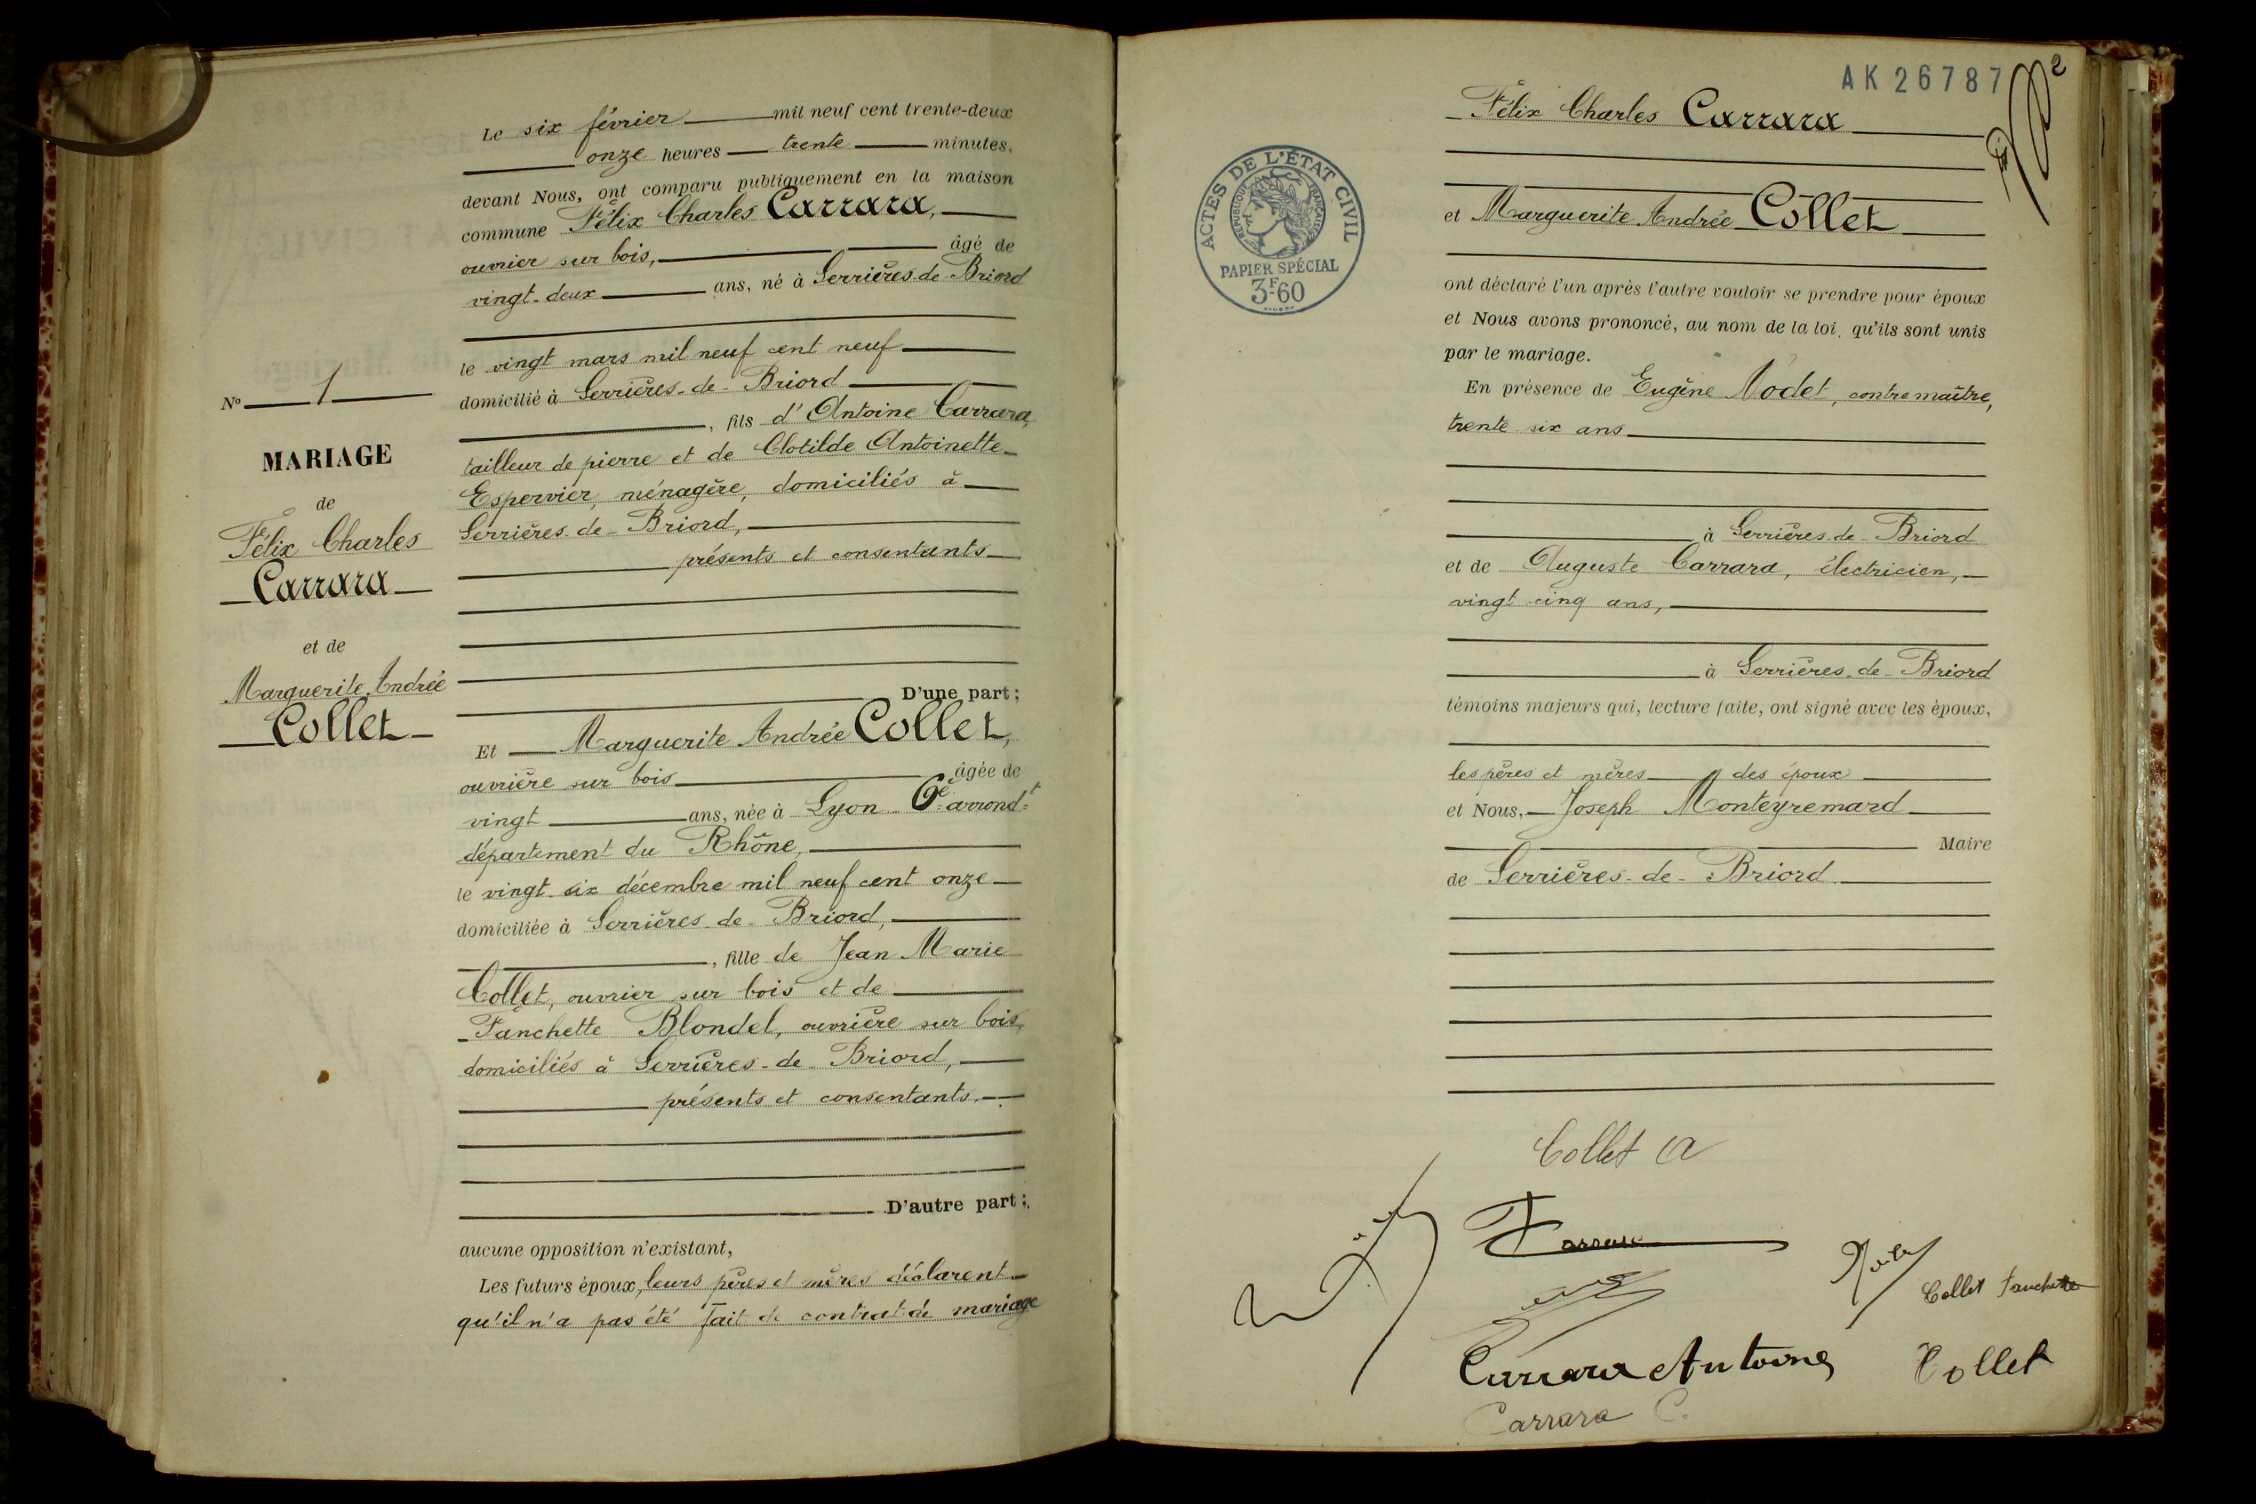 Le six février mil neuf cent trente-deux
onze heures trente minutes,
devant Nous, ont comparu publiquement en la maison
commune Félix Charles Carrara,
ouvrier sur bois, âgé de
vingt-deux ans, né à Serrières-de-Briord
le vingt mars mil neuf cent neuf
domicilié à Serrières-de-Briord
, fils d'Antoine Carrara,
tailleur de pierre et de Clotilde Antoinette
Espervier, ménagère, domiciliés à
Serrières-de-Briord,
présents et consentants
D'une part;
N° 1
MARIAGE
de
Félix Charles
Carrara
et de
Marguerite Andrée
Collet
Et Marguerite Andrée Collet,
ouvrière sur bois âgée de
vingt ans, née à Lyon 6e arrondt
département du Rhône,
le vingt-six décembre mil neuf cent onze
domiciliée à Serrières-de-Briord,
, fille de Jean Marie
Collet, ouvrier sur bois et de
Fanchette Blondel, ouvrière sur bois,
domiciliés à Serrières-de-Briord,
présents et consentants.
D'autre part;
aucune opposition n'existant,
Les futurs époux, leurs pères et mères déclarent
qu'il n'a pas été fait de contrat de mariage
AK 26787
2
Félix Charles Carrara
ACTES DE L'ÉTAT CIVIL
RÉPUBLIQUE FRANÇAISE
PAPIER SPÉCIAL
3F60
et Marguerite Andrée Collet
ont déclaré l'un après l'autre vouloir se prendre pour époux
et Nous avons prononcé, au nom de la loi, qu'ils sont unis
par le mariage.
En présence de Eugène Nodet, contremaître,
trente six ans
à Serrières-de-Briord
et de Auguste Carrara, électricien,
vingt cinq ans,
à Serrières-de-Briord
témoins majeurs qui, lecture faite, ont signé avec les époux,
les pères et mères des époux
et Nous, Joseph Monteyremard
Maire
de Serrières-de-Briord
Collet A
Carrara
Collet Fanchette
Carrara Antoine
Collet
Carrara C.